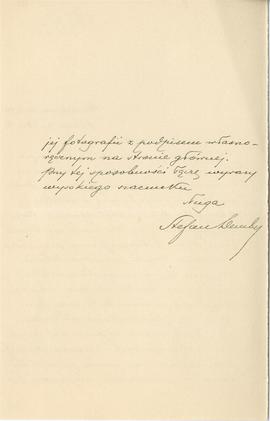 jej fotografii z podpisem własno-
ręcznym na stronie głównej.
Przy tej sposobności łączę wyrazy
wysokiego szacunku
Sługa
Stefan Demby